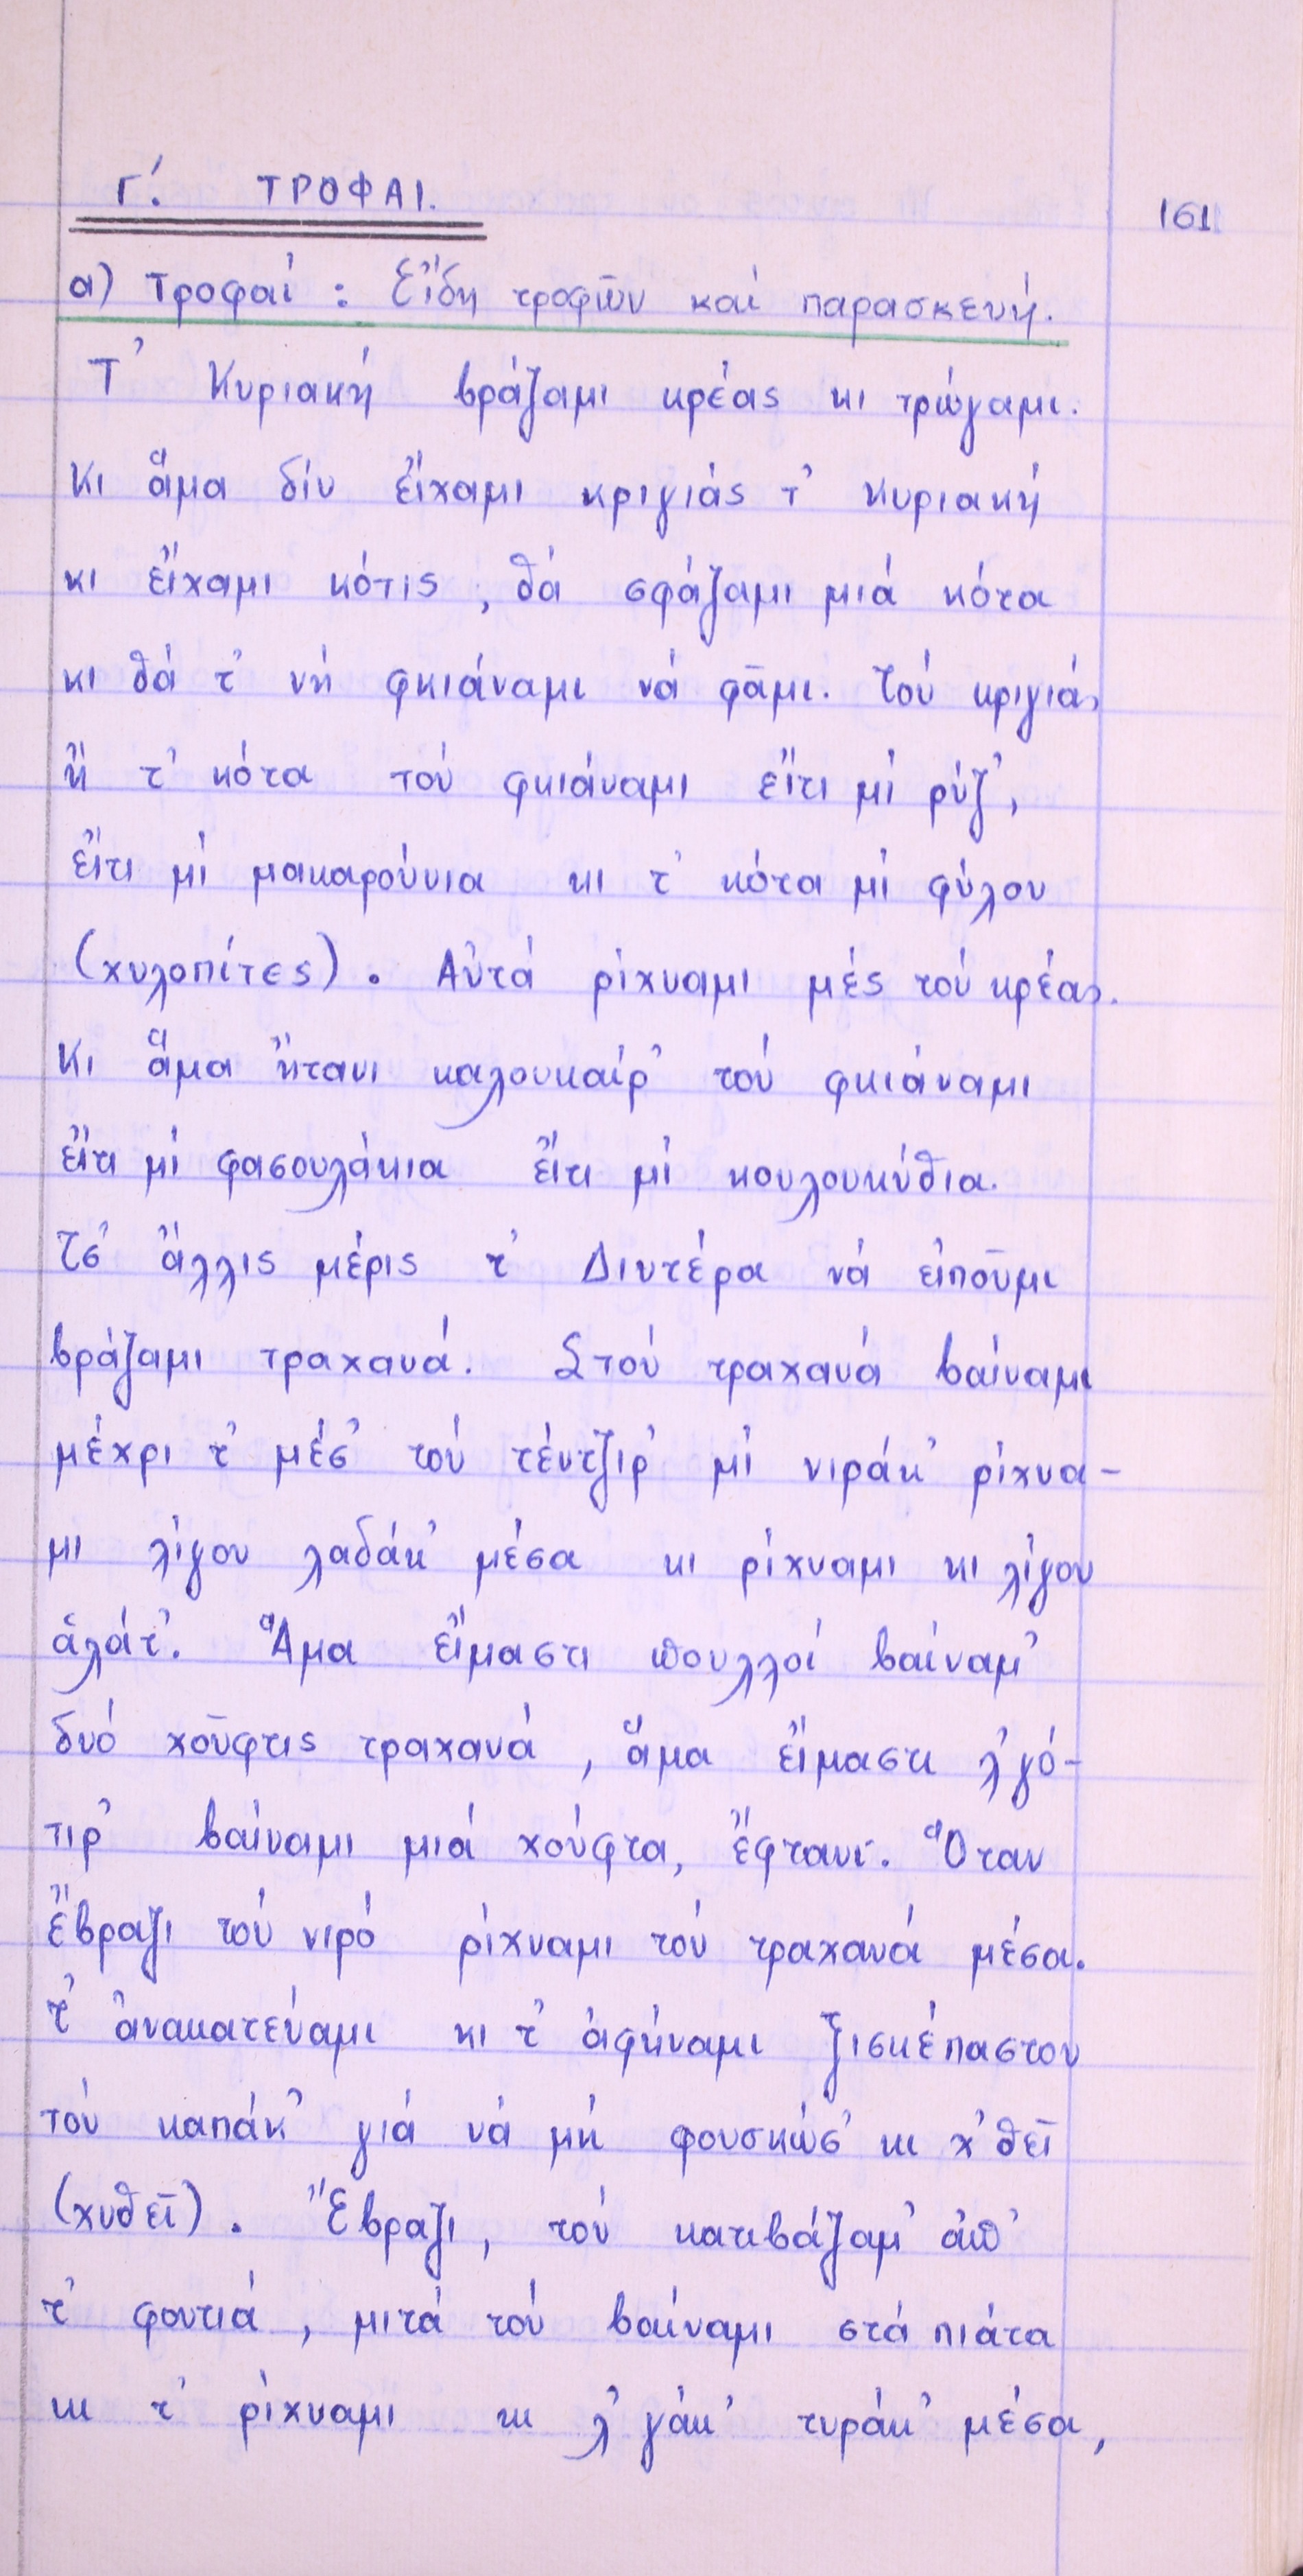 Γ΄. ΤΡΟΦΑΙ.
161
α) Τροφαί : Εἴδη τροφῶν καί παρασκευή.
Τ᾿ Κυριακή βράζαμι κρέας κι τρώγαμι.
Κι ἅμα δίν εἴχαμι κριγιάς τ᾿ Κυριακή
κι εἴχαμι κότις, θά σφάζαμι μιά κότα
κι θά τ᾿ νή φκιάναμι νά φᾶμι. Τού κριγιάς
ἤ τ᾿ κότα τού φκιάναμι εἴτι μί ρύζ᾿,
εἴτι μί μακαρούνια κι τ᾿ κότα μί φύλου
(χυλοπίτες). Αὐτά ρίχναμι μές τού κρέας.
Κι ἅμα ἤτανι καλουκαίρ᾿ τού φκιάναμι
εἴτι μί φασουλάκια εἴτι μί κουλουκύθια.
Τσ᾿ ἄλλις μέρις τ᾿ Διυτέρα νά εἰποῦμι
βράζαμι τραχανά. Στού τραχανά βαίναμι
μέχρι τ᾿ μέσ᾿ τού τέντζιρ᾿ μί νιράκ᾿ ρίχνα-
μι λίγου λαδάκ᾿ μέσα κι ρίχναμι κι λίγου
ἁλάτ᾿. Ἅμα εἴμαστι πουλλοί βαίναμ᾿
δυό χοῦφτις τραχανά, ἅμα εἴμαστι λ᾿γό-
τιρ᾿ βαίναμι μιά χούφτα, ἔφτανι. Ὅταν
ἔβραζι τού νιρό ρίχναμι τόν τραχανά μέσα.
τ᾿ ἀνακατεύαμι κι τ᾿ ἀφήναμι ξισκέπαστου
τού καπάκ᾿ γιά νά μή φουσκώσ᾿ κι χ᾿θεῖ
(χυθεῖ). Ἔβραζι, τού κατιβάζαμ᾿ ἀπ᾿
τ᾿ φουτιά, μιτά τού βαίναμι στά πιάτα
κι τ᾿ ρίχναμι κι λ᾿γάκ᾿ τυράκ᾿ μέσα,